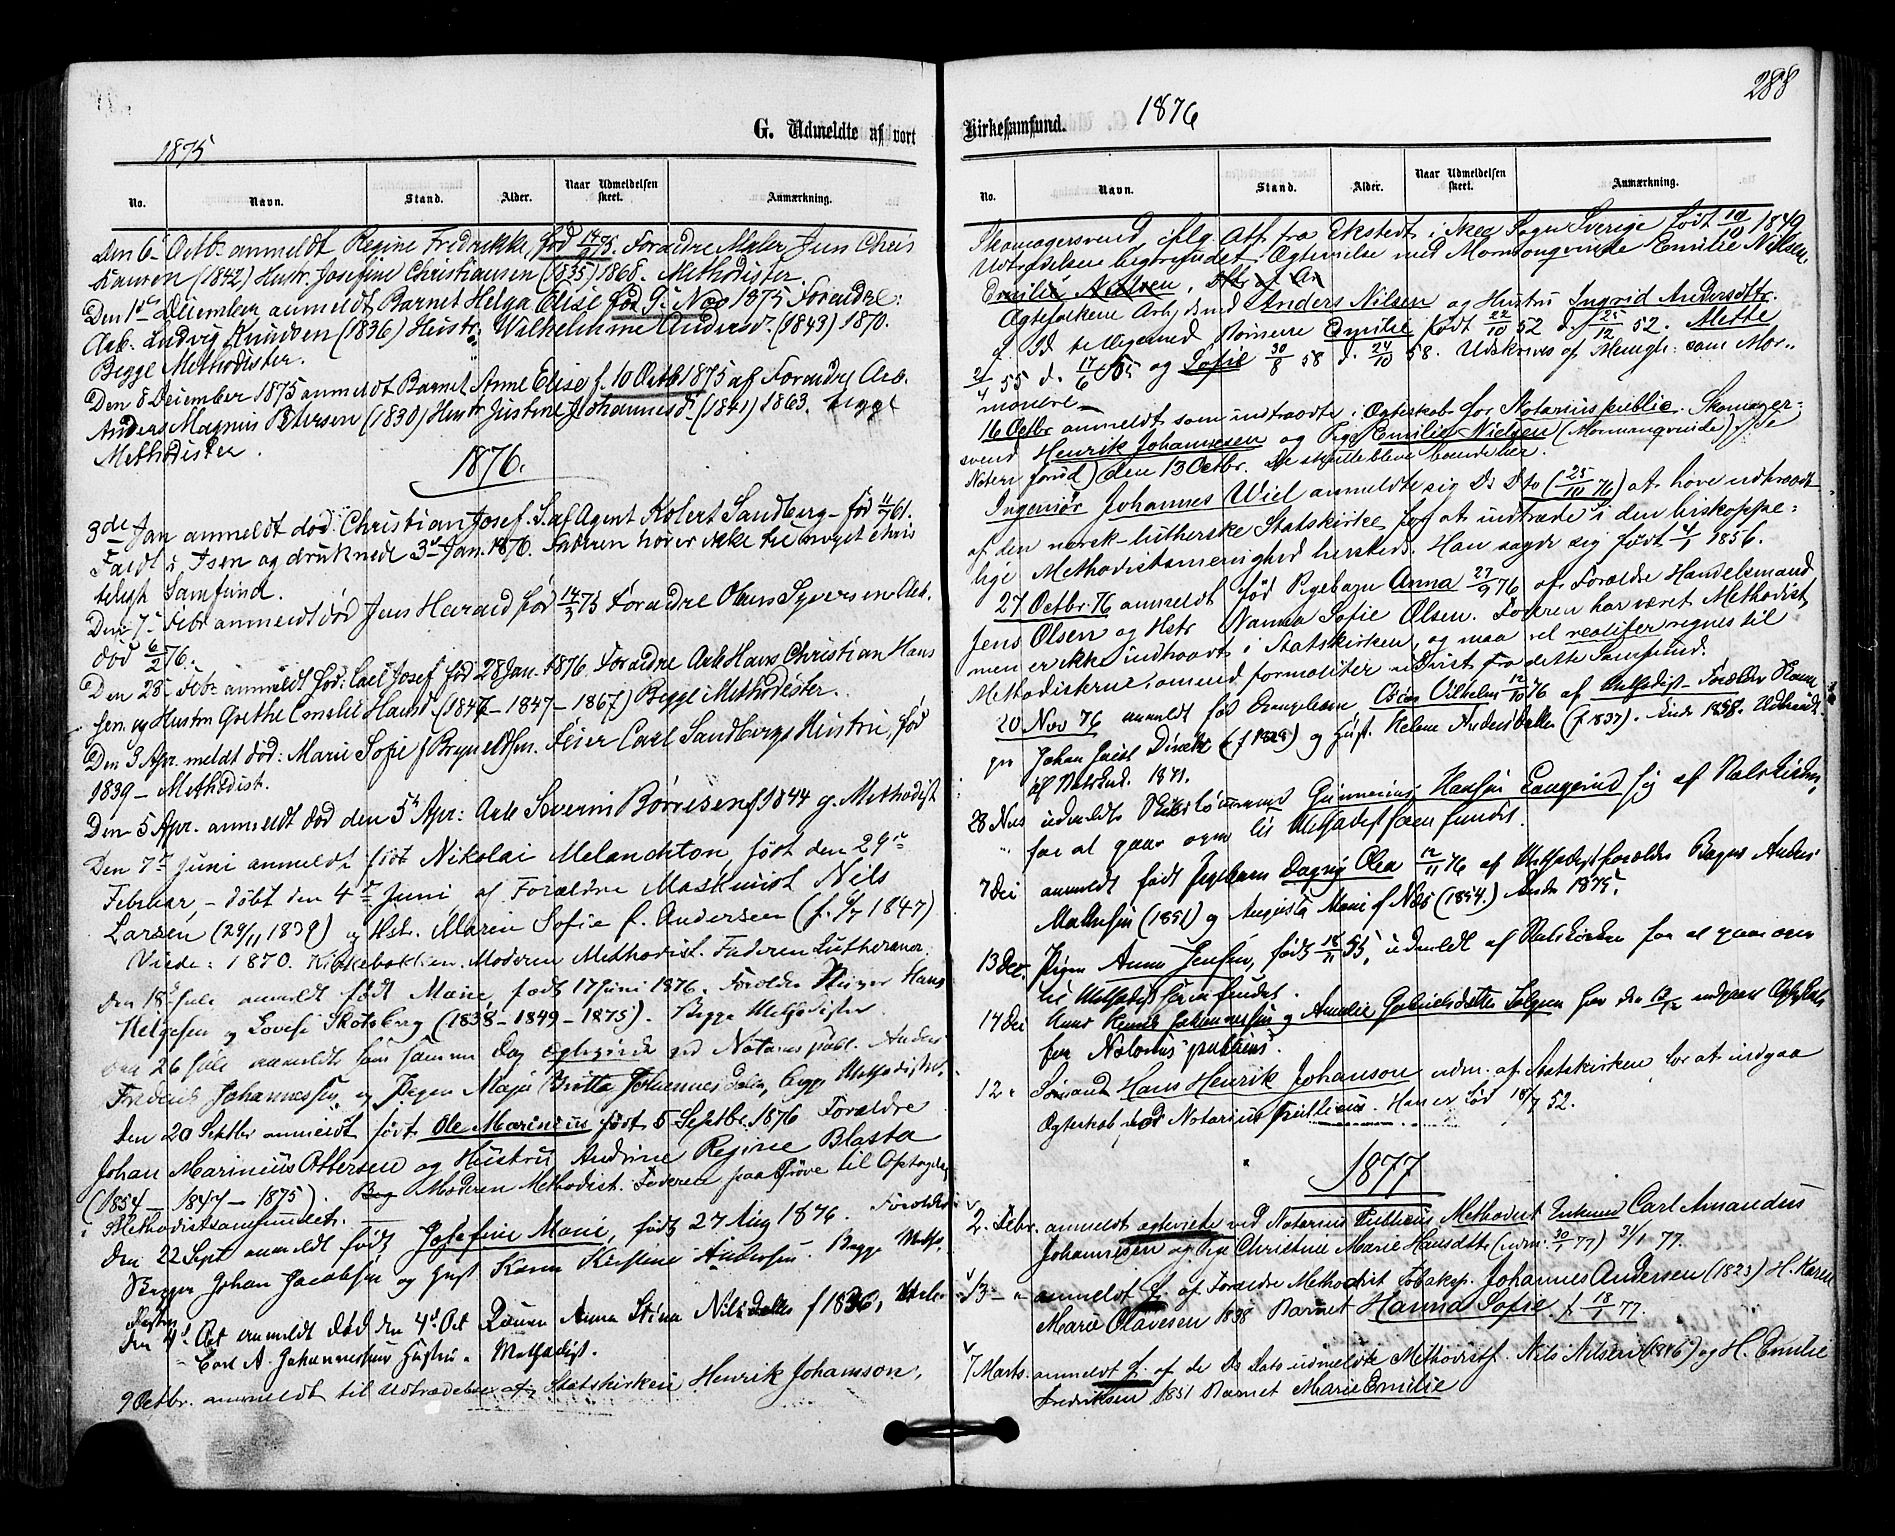 1875
G. Udmeldte af vort
No. Navn. Stand. Alder. Naar Udmeldelsen skeet. Anmærkning.
Den 6 Octbr anmeldt Regine Fredrikke, fød 17/9 75. Forældre Maler Jens Chris
Lauren (1842) Hustr. Josefine Christiansen (1835) 1868. Methodister.
Den 1ste December anmeldt Barnet Helga Elise fød 9 Nov 1875 Forældre:
Arb. Ludvig Knudsen (1836) Hustr: Wilhelmine Andersd. (1843) 1870.
Begge Methodister.
Den 8 December 1875 anmeldt Barnet Anne Elise f. 10 Octb 1875 af Forældre Arb.
Anders Magnus Petersen (1830) Hustr Justine Johannesd. (1841) 1863. begge
Methodister.
1876.
3de Jan anmeldt død: Christian Josef S. af Agent Kolert Sandberg fød 61.
Faldt i Isen og druknede 3d Jan. 1876. Faderen hører ikke til noget chris
teligt Samfund.
Den 7 Febr anmeldt død Jens Harald fød 14/3 75 Forældre Hans Syversen Arb.
død 6/2 76.
Den 28 Febr anmeldt fød: Carl Josef fød 28 Jan. 1876 Forældre Arb Hans Christian Hans
sen og Hustru Grethe Emelie Hansd. (1847 - 1847 - 1867) Begge Methodister.
Den 3 Apr. meldt død: Marie Sofie f. Feier Carl Sandbergs Hustru, fød
1839 - Methodist.
Den 5 Apr. anmeldt død den 5 Apr: Arb Severin Børresen f 1844 g. Methodist
Den 7de Juni anmeldt født Nikolai Melanchton, født den 29de
Februar, - døbt den 4de Juni, af Forældre Maskinist Nils
Larsen (29/11 1839) og Hst. Maren Sofie f. Andersen (f. 1847)
Viede: 1870. Moderen Methodist. Faderen Lutheraner.
Den 18 Juli anmeldt født Marie, født 17 Juni 1876. Forældre Hans
Helgesen og Lovise Skotsberg (1838 - 1849 - 1875). Begge Methodister.
Den 26 Juli anmeldt som samme Dag Notarius publ. Anders
Fredrik Johannessen og Pigen Maja Britta Johannesdatter, begge Methodister.
Den 20 Septbr anmeldt født Ole Marinius født 5 Septbr. 1876 Forældre
Johan Marinius Ottersen og Hustru Andrine Regine Blasta
(1854 - 1847 - 1875). Moderen Methodist. Faderen paa Prøve til Optagelse
i Methodistsamfundet.
Den 22 Sept anmeldt født Josefine Marie, født 27 Aug 1876. Forældre
Johan Jacobsen og Hust Karen Kirstine Andersen. Begge Meth.
Den 4d Oct anmeldt død den 4d Oct Konen Anna Stina Nilsdatter f 1836,
Carl A. Johannessens Hustru. Methodist.
9 Octbr. anmeldt til Udtrædelse af Statskirken Henrik Johansson,
288
1876
Kirkesamfund.
No. Navn. Stand. Alder. Naar Udmeldelsen skeet. Anmærkning.
Skomagersvend iflg. Att. fra Ekstedt i Skee Sogn Sverige født 10/10 1849
Udtrædelsen begrundet i Ægtevielse med Mormonqvinde Emilie Nilsen.
Emilie Nilsen, Dtr af Ar
Ægtefolkene Arb. Anders Nilsen og Hustru Ingrid Andersdtr.
f. Børnene Emilie født 22/10 52 d. 25/12 52. Mette
21/4 55 d. 17/6 55 og Sofie 30/8 58 d. 24/10 58. Udskrives af Menigh: som Mor-
monere
16 Octbr anmeldt som indtraadte i Ægteskab for Notarius public. Skomager-
svend Henrik Johannesen og Pige Emilie Nielsen (Mormonqvinde)
Noteri forud) den 13 Octbr. De skulle bleve boende her.
Ingeniør Johannes Wiel anmeldte sig Ds Dto (25/10 76) at have udtraadt
af den norsk-lutherske Statskirke for at indtræde i den biskoppe-
lige Methodistmenighed hersteds. Han sagde sig født 4/1 1856.
27 Octbr. 76 anmeldt fød Pigebarn Anna 27/9 76 af Forældre Handelsmand
Jens Olsen og Hstr Nanna Sofie Olsen. Faderen har været Methodist
men er ikke indtraadt i Statskirken, og maa vel realiter regnes til
Methodisterne, omend formaliter udvist fra dette Samfund.
20 Nov 76 anmeldt fød Drengebarn Oscar Vilhelm 12/10 76 af Methodist-Forældre
Johan (f 1828) og Hust. Helene Andersdatter (f. 1837). Viede 1858. Udmeldt
af Statskirk. 1871.
28 Nov udmeldt Gunnerius Hansen Langerud sig af Statskirken,
for at gaa over til Methodistsamfundet.
7 Dec anmeldt født Pigebarn Dagny Olea 12/11 76 af Methodistforældre Anders
Mathesen (1851) og Augusta Marie f Næs (1854.) Viede 1875.
13 Dec. Pigen Anna Jensen, født 18/11 55, udmeldt af Statskirken for at gaa over
til Methodistsamfundet.
14 Dec Henrik Johannessen og Amalie Gabrielsdatter har den indgaaet Ægteskab
for Notarius publicus.
12 " Sømand Hans Henrik Johanson udm. af Statskirken for at indgaa
Ægteskab ved Notarius Publicus. Han er fød 18/7 52.
1877
2. Febr. anmeldt ægteviede ved Notarius Publicus Methodist Enkem. Carl Amandus
Johannesen og Pige Christine Marie Hansdtr (udm. 30/1 77) 31/1 77.
13 - " anmeldt f. af Forældre Methodist Tobaksp. Johannes Andersen (1823) H. Karen
Marie Olavesen 1838 Barnet Hanna Sofie f 18/1 77.
7 Marts. anmeldt f. af de Ds Dato udmeldte Methodistf. Nils Nilsen (1846) og H. Emilie
Fredriksen 1851 Barnet Marie Emilie